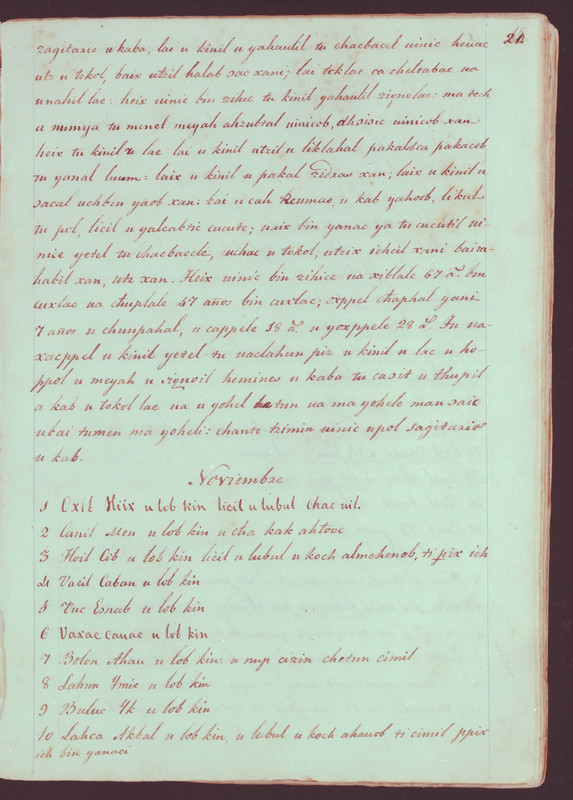 24.
zagitario u kaba, lai u kinil u yahaulil tu chacbacel uinic heuac
utz u tokol, baix utzil halab sac xani; lai toklac ca cheltabac na
unahil lae: heix uinic bin zihic tu kinil yahaulil zignolae: ma tech
u numya tu menel meyah ahzubtal uinicob, dhsisic uinicob xan
heix tu kinil u lae lai u kinil utzil u liklahal pakalsca pakacob
tu yanal luum: laix u kinil u pakal zidras xan; laix u kinil u
sacal uchben yaob xan: tai u cah Reumas, u kab yahoob, likul
tu pol, licil u yalcabtic cucute; uaix bin yanac ya tu cucutil ui-
nic yetel tu chacbacele, uchac u tokol, utzix ichcil xini baiza-
habil xan, utz xan. Heix uinic bin zihice ua xiblale 67 a. bin
cuxlac ua chuplale 47 años bin cuxlac; oxppel chaphal yani
7 años u chunpahal, u cappele 18 a. u yoxppele 28 a. Tu ua-
xacppel u kinil yetel tu uaclahun piz u kinil u lae u ho-
ppol u meyah u signoil hemines u kaba tu casit u thupil
a kab u tokol lae ua u yohel tun ua ma yohele man saic
ukai tumen ma yoheli: chante tzimin uinic upol sagitarios
u kab.
Noviembre
1 Oxil Hiix u lob kin licil u lubul chac uil.
2 Canil Men u lob kin u cha kak ahtooc
3 Hoil Cib u lob kin licil u lubul u koch almehenob, ti pix ich
4 Uacil Caban u lob kin
5 Uuc Esnab u lob kin
6 Vaxac cauac u lob kin
7 Bolon Ahau u lob kin: u nup cizin chotun cimil
8 Lahun Ymix u lob kin
9 Buluc Yk u lob kin
10 Lahca Akbal u lob kin, u lubul u koch ahauob ti cimil ppix
ich bin yanaci